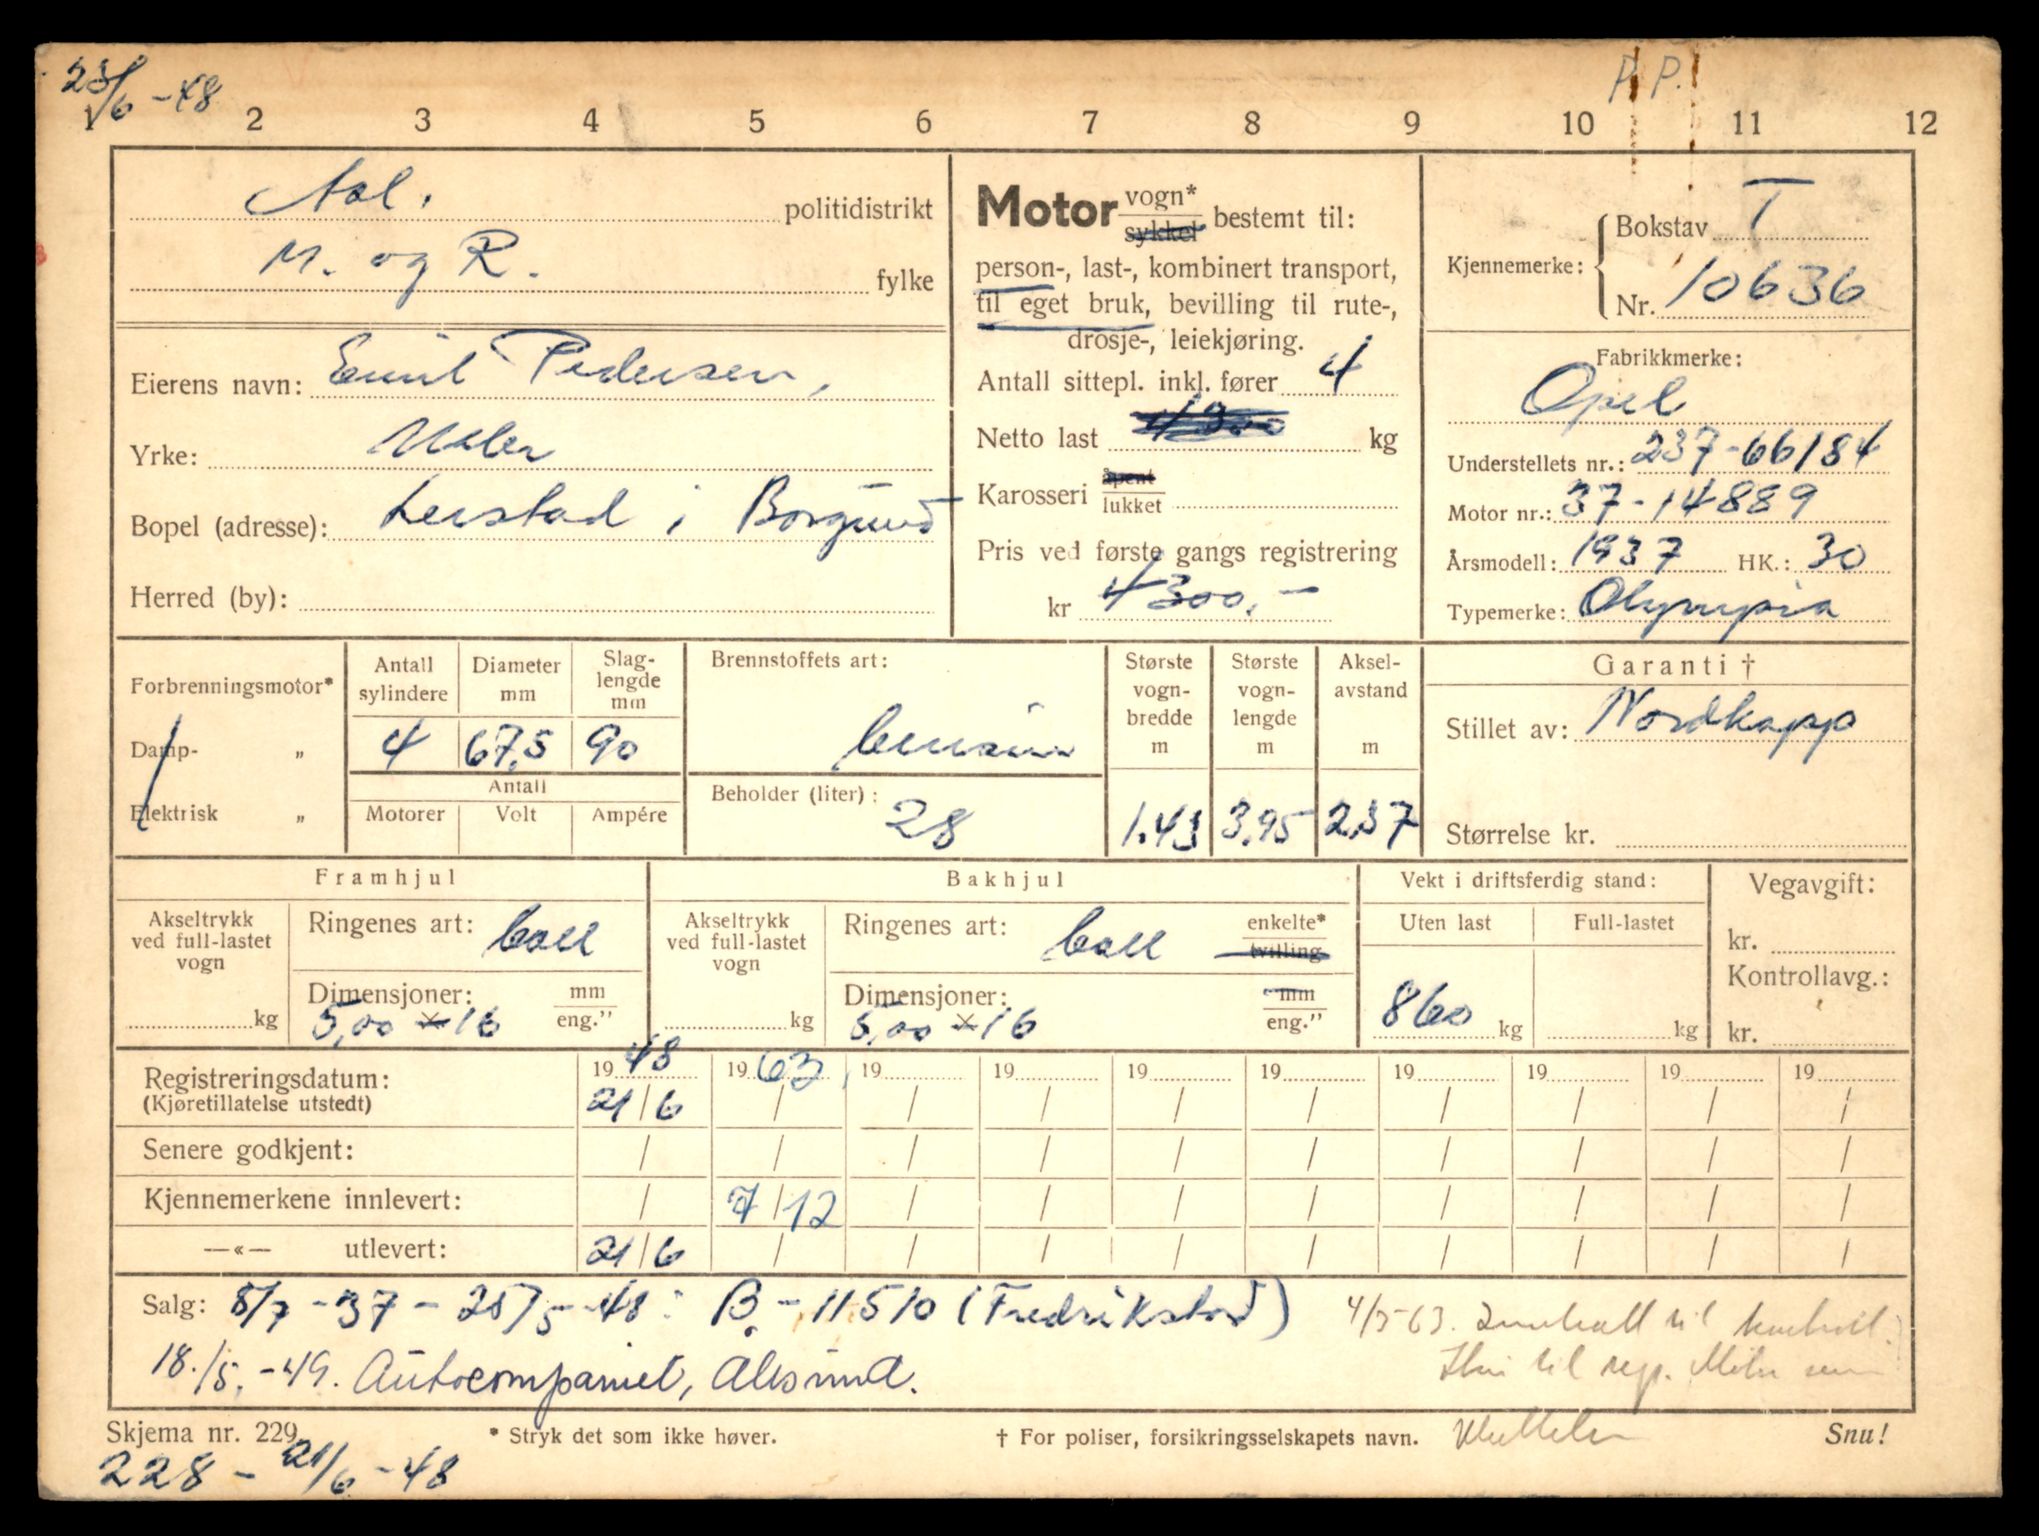 23/6 - 48
P.P.
1 2 3 4 5 6 7 8 9 10 11 12
Aal. politidistrikt
M. og R. fylke
Eierens navn: Emil Pedersen,
Yrke:
Bopel (adresse): Lerstad i Borgund
Herred (by):
Motor vogn* sykkel bestemt til:
person-, last-, kombinert transport,
til eget bruk, bevilling til rute-,
drosje-, leiekjøring.
Antall sittepl. inkl. fører 4
Netto last 4300 kg
Karosseri åpent lukket
Pris ved første gangs registrering
kr 4300,-
Kjennemerke: Bokstav T
Nr. 10636
Fabrikkmerke:
Opel
Understellets nr.: 237-66184
Motor nr.: 37-14889
Årsmodell: 1937 HK.: 30
Typemerke: Olympia
Forbrenningsmotor*
Damp- „
Elektrisk „
Antall sylindere 4
Diameter mm 67,5
Slag-lengde mm 90
Antall
Motorer Volt Ampére
Brennstoffets art:
bensin
Beholder (liter):
28
Største vogn-bredde m 1.43
Største vogn-lengde m 3.95
Aksel-avstand m 2.37
Garanti †
Stillet av: Nordkapp
Størrelse kr.
Framhjul
Akseltrykk ved full-lastet vogn kg
Ringenes art: ball
Dimensjoner: mm eng."
5,00 x 16
Bakhjul
Akseltrykk ved full-lastet vogn kg
Ringenes art: ball enkelte* tvilling
Dimensjoner: mm eng."
5,00 x 16
Vekt i driftsferdig stand:
Uten last Full-lastet
860 kg kg
Vegavgift:
kr.
Kontrollavg.:
kr.
1948 1963 19 19 19 19 19 19 19 19
Registreringsdatum: 21/6
(Kjøretillatelse utstedt)
Senere godkjent:
Kjennemerkene innlevert: 7/12
—«— utlevert: 21/6
Salg: 8/7 - 37 - 25/5 - 48: B - 11510 (Fredrikstad)
4/5-63. Innkalt til kontroll.
18./5. - 49. Autocompaniet, Ålesund.
til rep.
Skjema nr. 229
* Stryk det som ikke høver.
† For poliser, forsikringsselskapets navn.
Snu!
228 - 21/6 - 48